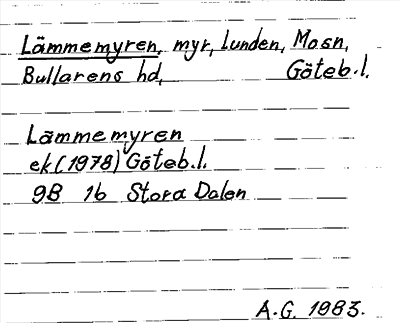 Lämmemyren, myr, lunden, Mosn,
Bullarens hd, Göteb.l.
Lämmemyren
ek (1978) Göteb.l.
9B 1b Stora Dalen
A.G. 1983.